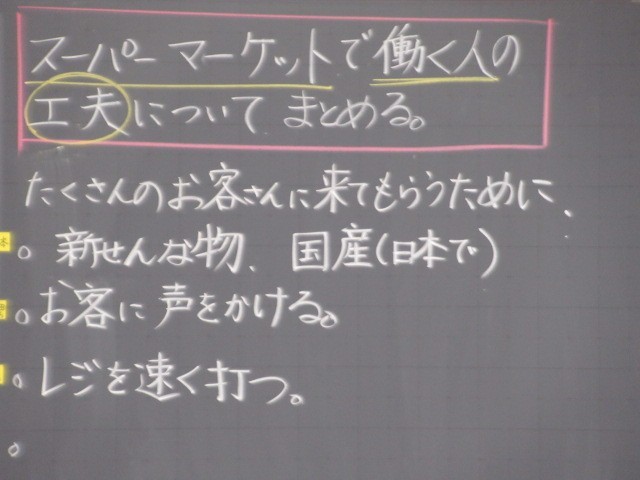 スーパーマーケットで働く人の
工夫についてまとめる。
たくさんのお客さんに来てもらうために、
。新せんな物、国産(日本で)
。お客に声をかける。
。レジを速く打つ。
。